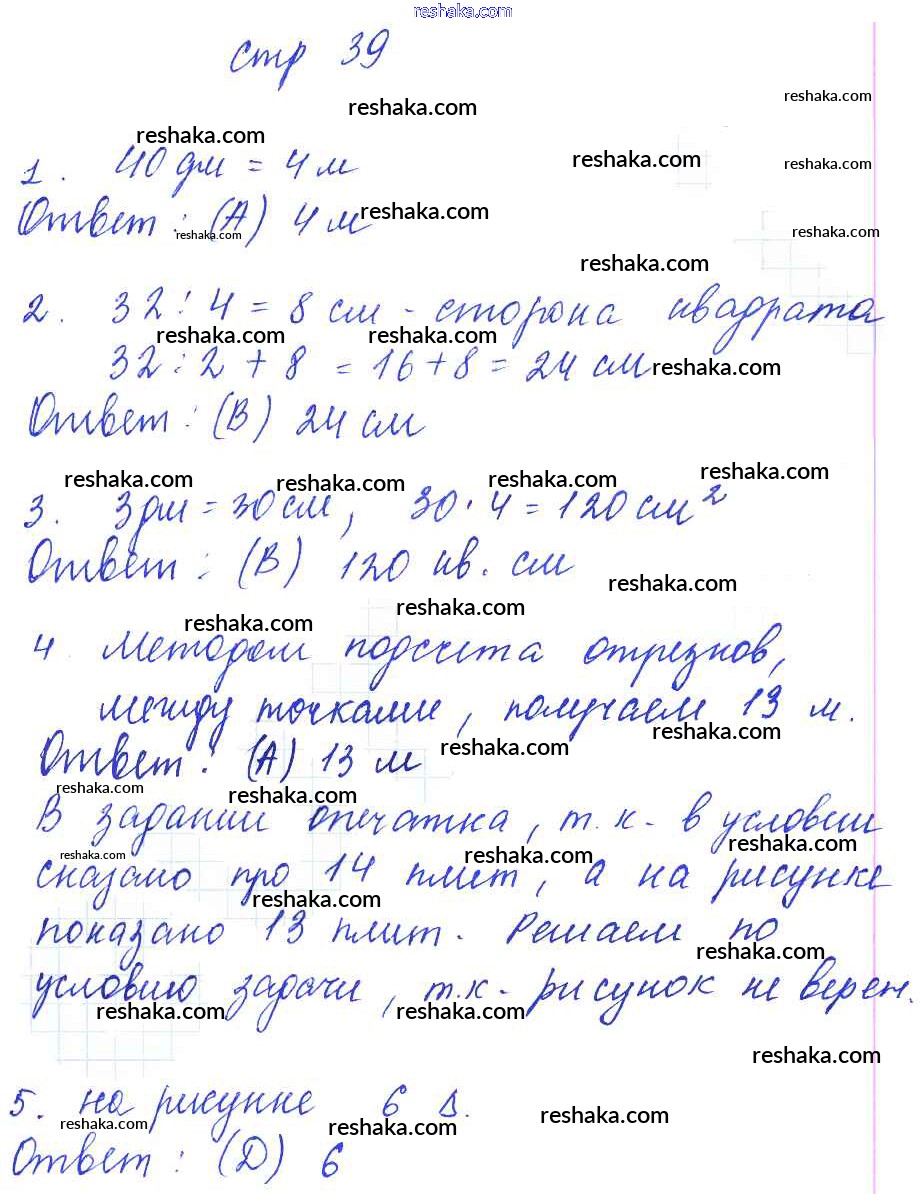 reshaka.com
стр 39
reshaka.com
reshaka.com
reshaka.com
reshaka.com
reshaka.com
1. 40 дм = 4 м
Ответ: (А) 4 м
reshaka.com
reshaka.com
reshaka.com
reshaka.com
2. 32 : 4 = 8 см - сторона квадрата
reshaka.com
reshaka.com
32 : 2 + 8 = 16 + 8 = 24 см
reshaka.com
Ответ: (В) 24 см
reshaka.com
reshaka.com
reshaka.com
reshaka.com
3. 3 дм = 30 см, 30 · 4 = 120 см²
Ответ: (В) 120 кв. см
reshaka.com
reshaka.com
reshaka.com
4 Методом подсчета отрезков,
между точками, получаем 13 м.
reshaka.com
reshaka.com
Ответ: (А) 13 м
reshaka.com
reshaka.com
В задании опечатка, т.к. в условии
reshaka.com
reshaka.com
reshaka.com
сказано про 14 плит, а на рисунке
reshaka.com
показано 13 плит. Решаем по
reshaka.com
условию задачи, т.к. рисунок не верен.
reshaka.com
reshaka.com
reshaka.com
5. на рисунке 6 Δ.
reshaka.com
reshaka.com
reshaka.com
Ответ: (D) 6